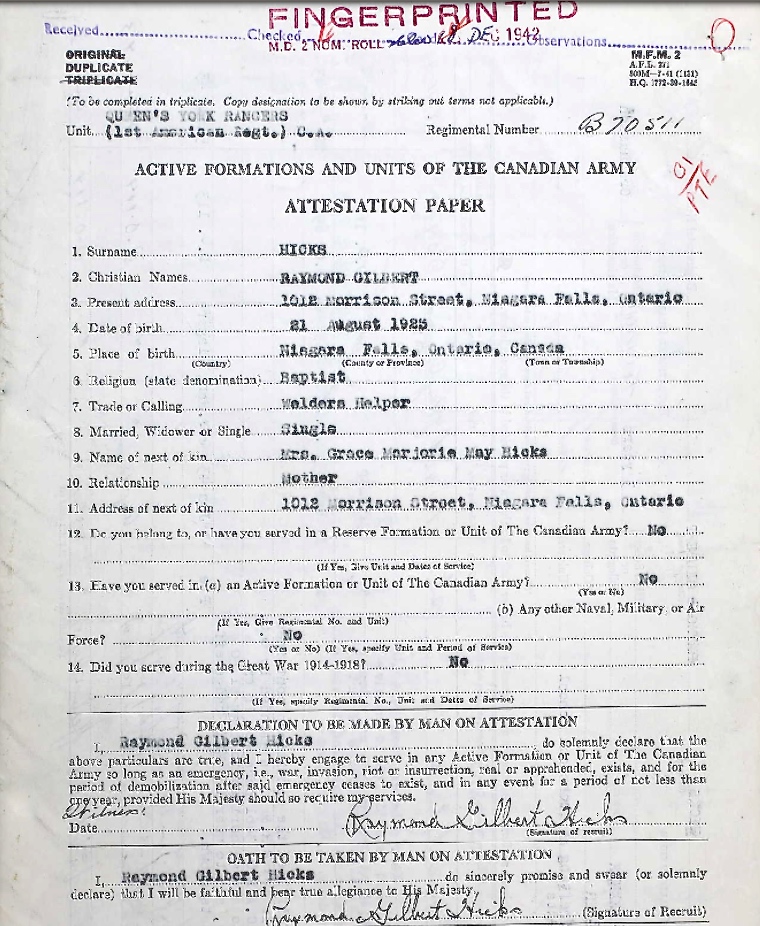 FINGERPRINTED
Received Checked DEC 1942 Observations
M.D. 2 NOM. ROLL
ORIGINAL
DUPLICATE
TRIPLICATE
M.F.M. 2
A.F.L. 271
500M—7-41 (1131)
H.Q. 1772-39-1645
(To be completed in triplicate. Copy designation to be shown by striking out terms not applicable.)
QUEEN'S YORK RANGERS
Unit (1st American Regt.) C.A. Regimental Number B70511
ACTIVE FORMATIONS AND UNITS OF THE CANADIAN ARMY
PTE
ATTESTATION PAPER
1. Surname HICKS
2. Christian Names RAYMOND GILBERT
3. Present address 1012 Morrison Street, Niagara Falls, Ontario
4. Date of birth 21 August 1925
5. Place of birth Niagara Falls, Ontario, Canada
(Country) (County or Province) (Town or Township)
6. Religion (state denomination) Baptist
7. Trade or Calling Welders Helper
8. Married, Widower or Single Single
9. Name of next of kin Mrs. Grace Marjorie May Hicks
10. Relationship Mother
11. Address of next of kin 1012 Morrison Street, Niagara Falls, Ontario
12. Do you belong to, or have you served in a Reserve Formation or Unit of The Canadian Army? No
(If Yes, Give Unit and Dates of Service)
13. Have you served in (a) an Active Formation or Unit of The Canadian Army? No
(Yes or No)
(b) Any other Naval, Military, or Air
(If Yes, Give Regimental No. and Unit)
Force? No
(Yes or No) (If Yes, specify Unit and Period of Service)
14. Did you serve during the Great War 1914-1918? No
(If Yes, specify Regimental No., Unit and Dates of Service)
DECLARATION TO BE MADE BY MAN ON ATTESTATION
I, Raymond Gilbert Hicks do solemnly declare that the
above particulars are true, and I hereby engage to serve in any Active Formation or Unit of The Canadian
Army so long as an emergency, i.e., war, invasion, riot or insurrection, real or apprehended, exists, and for the
period of demobilization after said emergency ceases to exist, and in any event for a period of not less than
one year, provided His Majesty should so require my services.
Witness:
Date Raymond Gilbert Hicks
(Signature of recruit)
OATH TO BE TAKEN BY MAN ON ATTESTATION
I, Raymond Gilbert Hicks do sincerely promise and swear (or solemnly
declare) that I will be faithful and bear true allegiance to His Majesty.
Raymond Gilbert Hicks (Signature of Recruit)